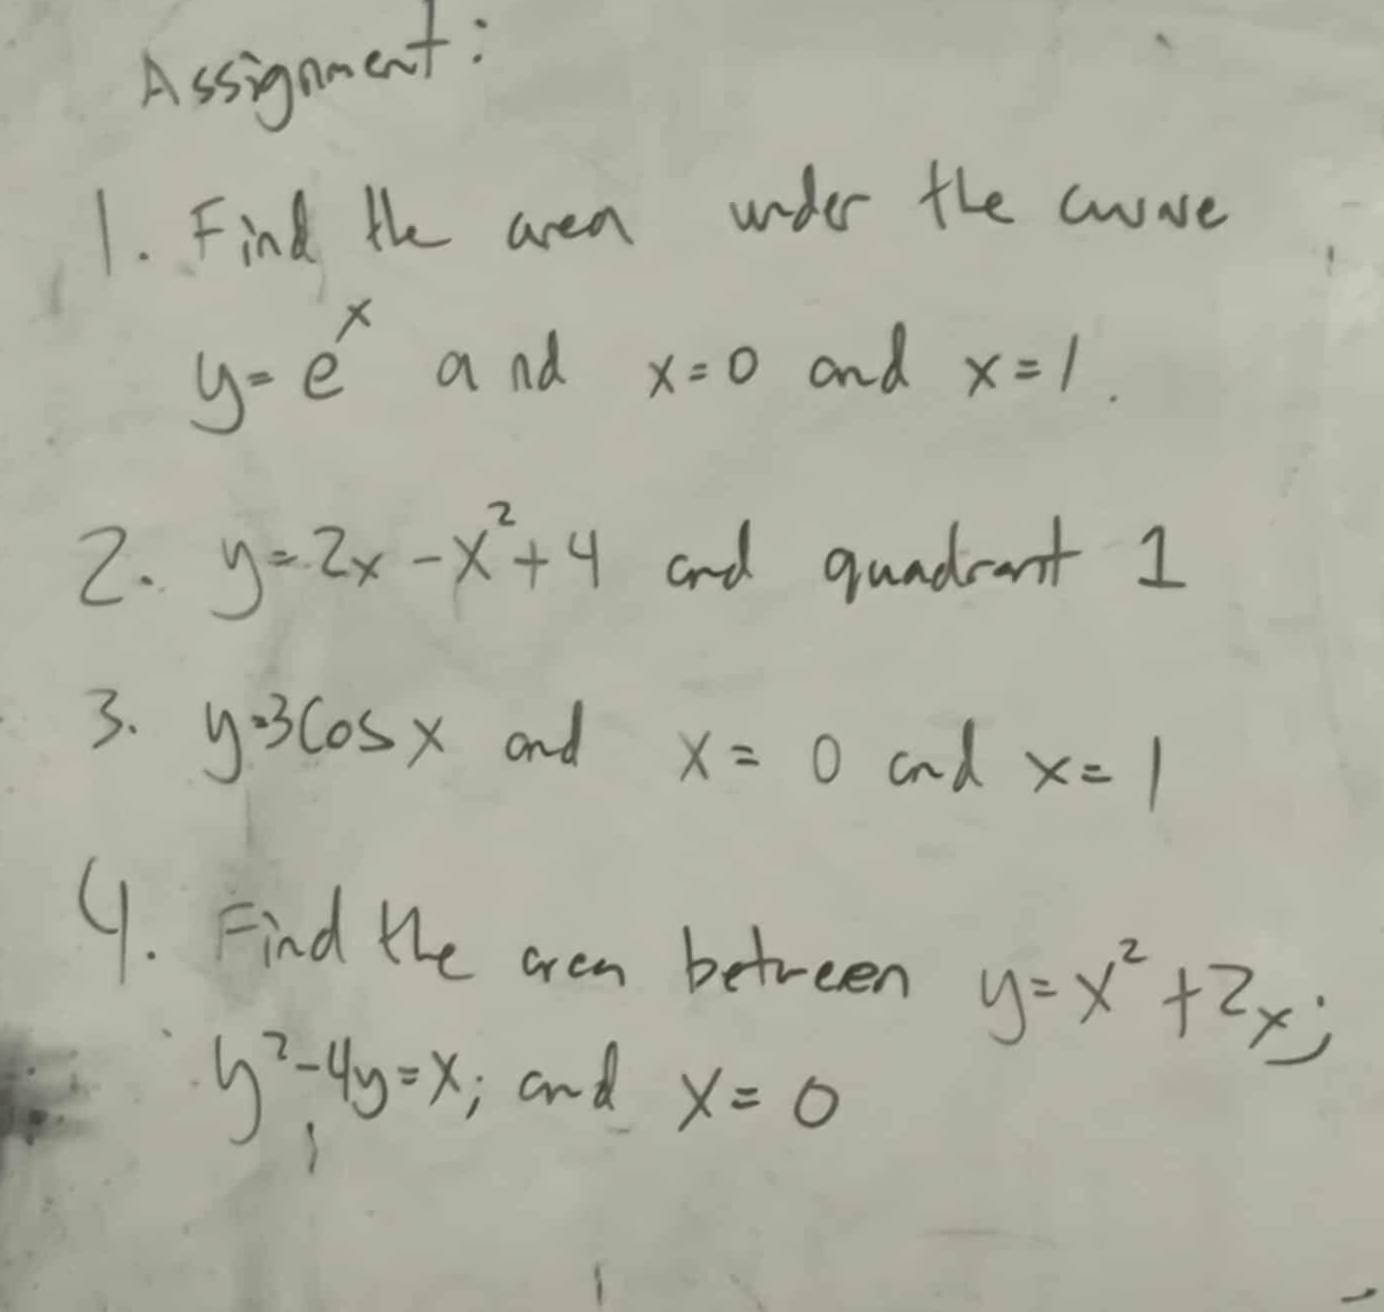 Assignment:
1. Find the area under the curve
y = e^x and x = 0 and x = 1.
2. y = 2x - x² + 4 and quadrant 1
3. y = 3 Cos x and x = 0 and x = 1
4. Find the area between y = x² + 2x;
y² - 4y = x; and x = 0